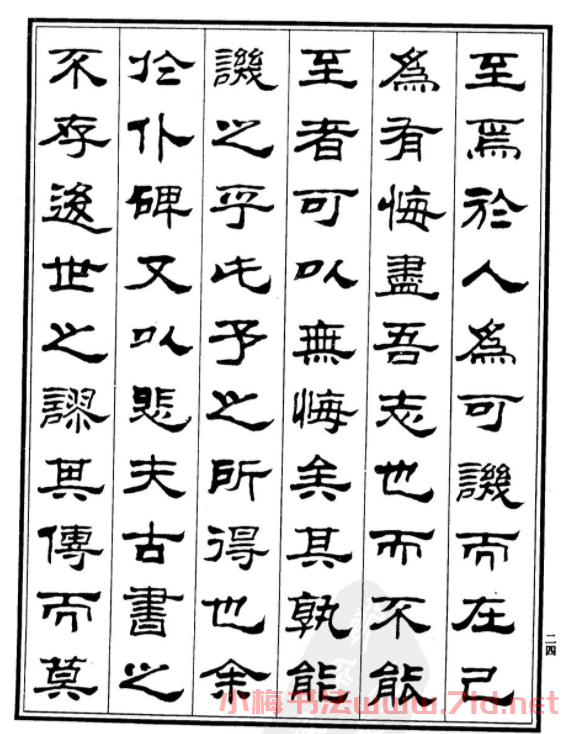 至焉於人為可譏而在己
為有悔盡吾志也而不能
至者可以無悔矣其孰能
譏之乎此予之所得也余
於仆碑又以悲夫古書之
不存後世之謬其傳而莫
二四
小梅书法www.7ld.net